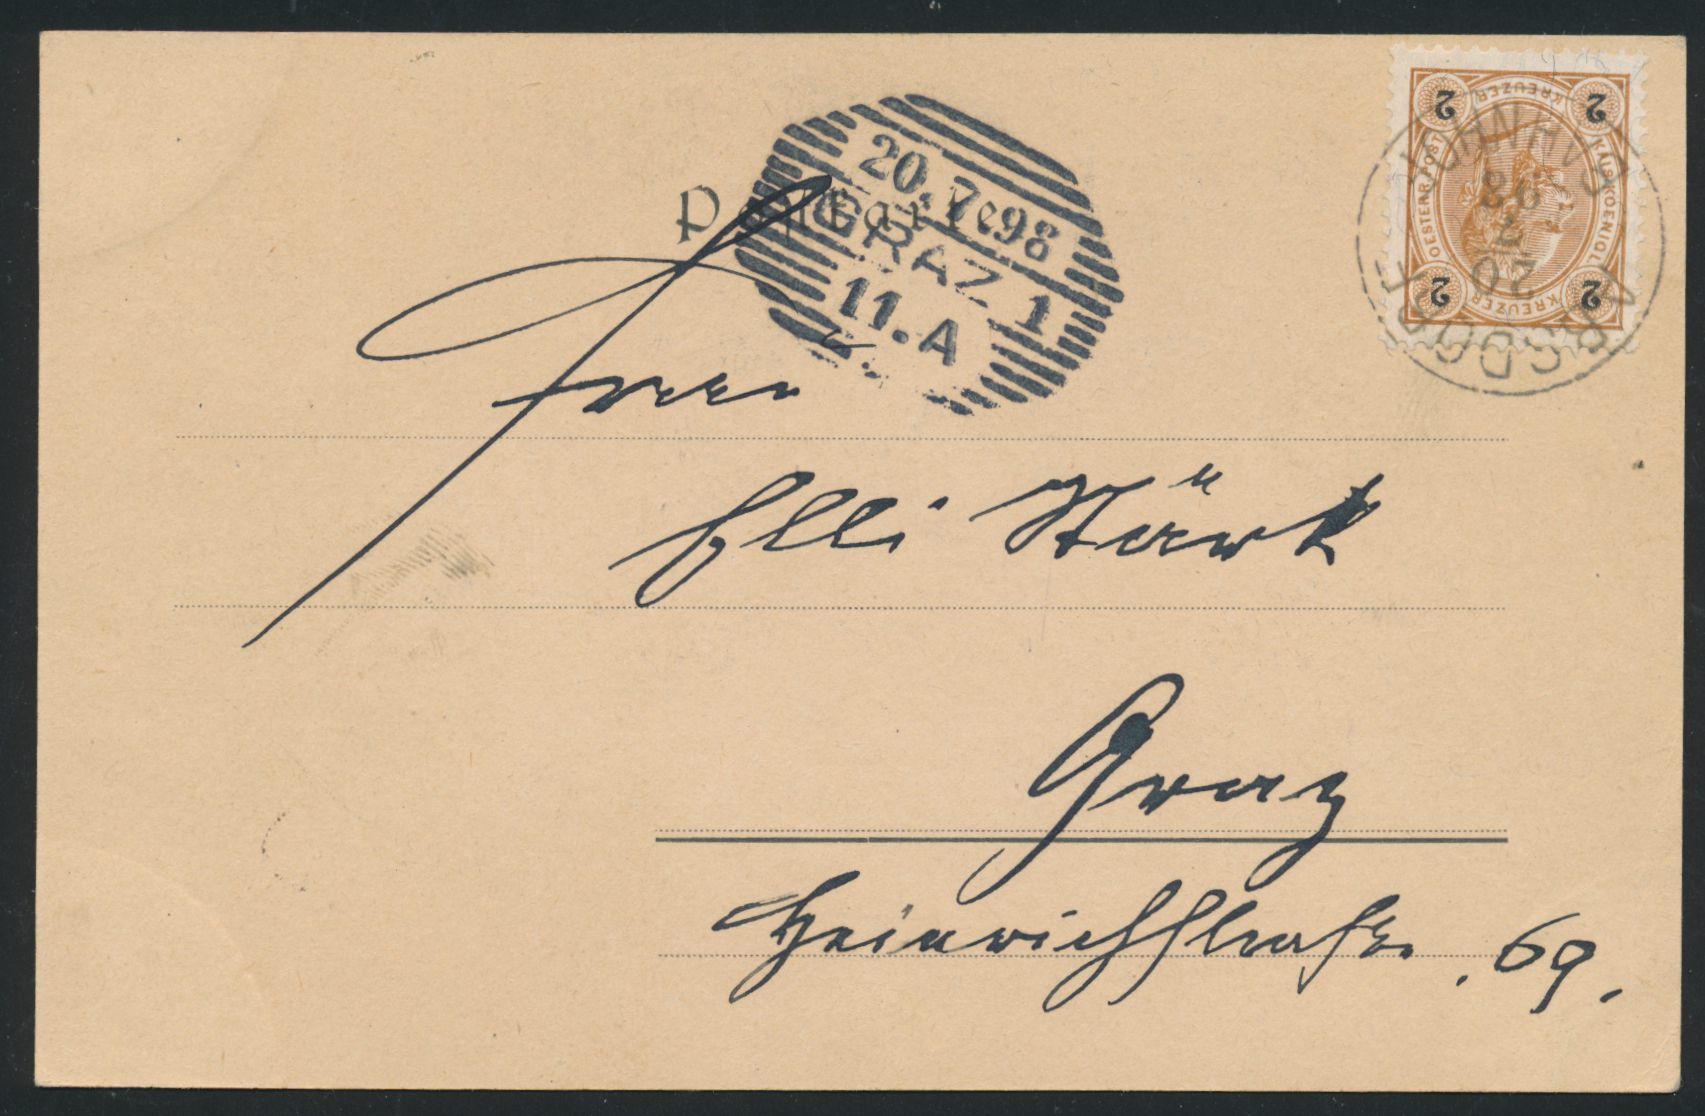 Postkarte
20.7.98
GRAZ 1
11.A
2 KREUZER 2
OESTERR.POST
KAIS.KOENIGL.
2 KREUZER 2
JOHNHUS
20
7
98
Frau
Elli Stärk
Graz
Heinrichstraße. 69.